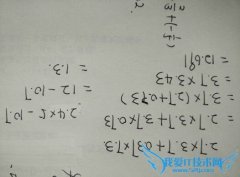 2.7×3.7+0.37×73
=2.7×3.7+3.7×0.73
=3.7×(2.7+0.73)
=3.7×3.43
=12.691
2.4×5-10.7
=12-10.7
=1.3
我爱IT技术网